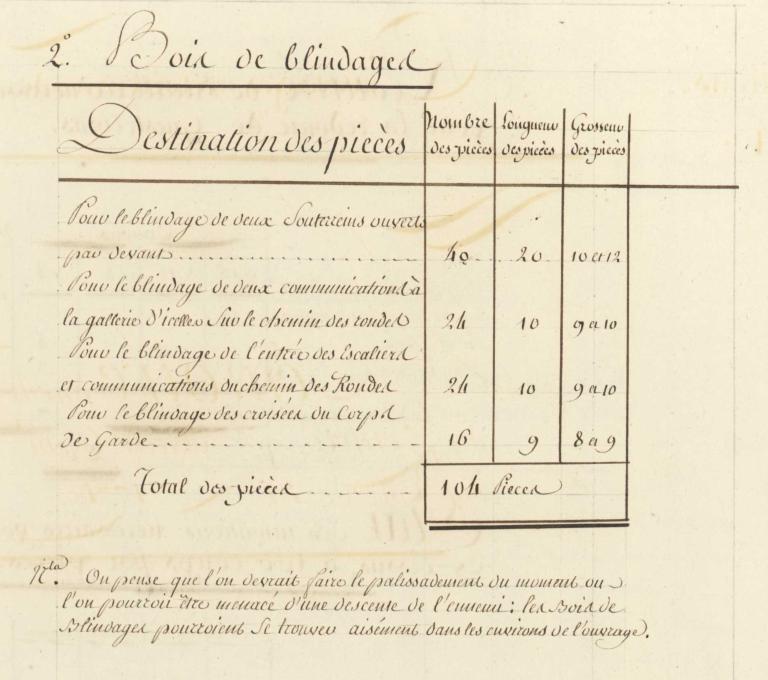 2.° Bois de blindages
Destination des pièces
Nombre des pièces
Longueur des pièces
Grosseur des pièces
Pour le blindage de deux Souterreins ouverts
par devant .......... 40 20 10 et 12
Pour le blindage de deux communications à
la gallerie d'icelles Sur le chemin des rondes 24 10 9 a 10
Pour le blindage de l'entrée des Escaliers
et communications du chemin des Rondes 24 10 9 a 10
Pour le blindage des croisées du Corps
de Garde .......... 16 9 8 a 9
Total des pièces .......... 104 Pieces
N.ta On pense que l'on devrait faire le palissadement du moment ou
l'on pourroit être menacé d'une descente de l'ennemi : les Bois de
Blindages pourroient Se trouver aisément dans les environs de l'ouvrage.